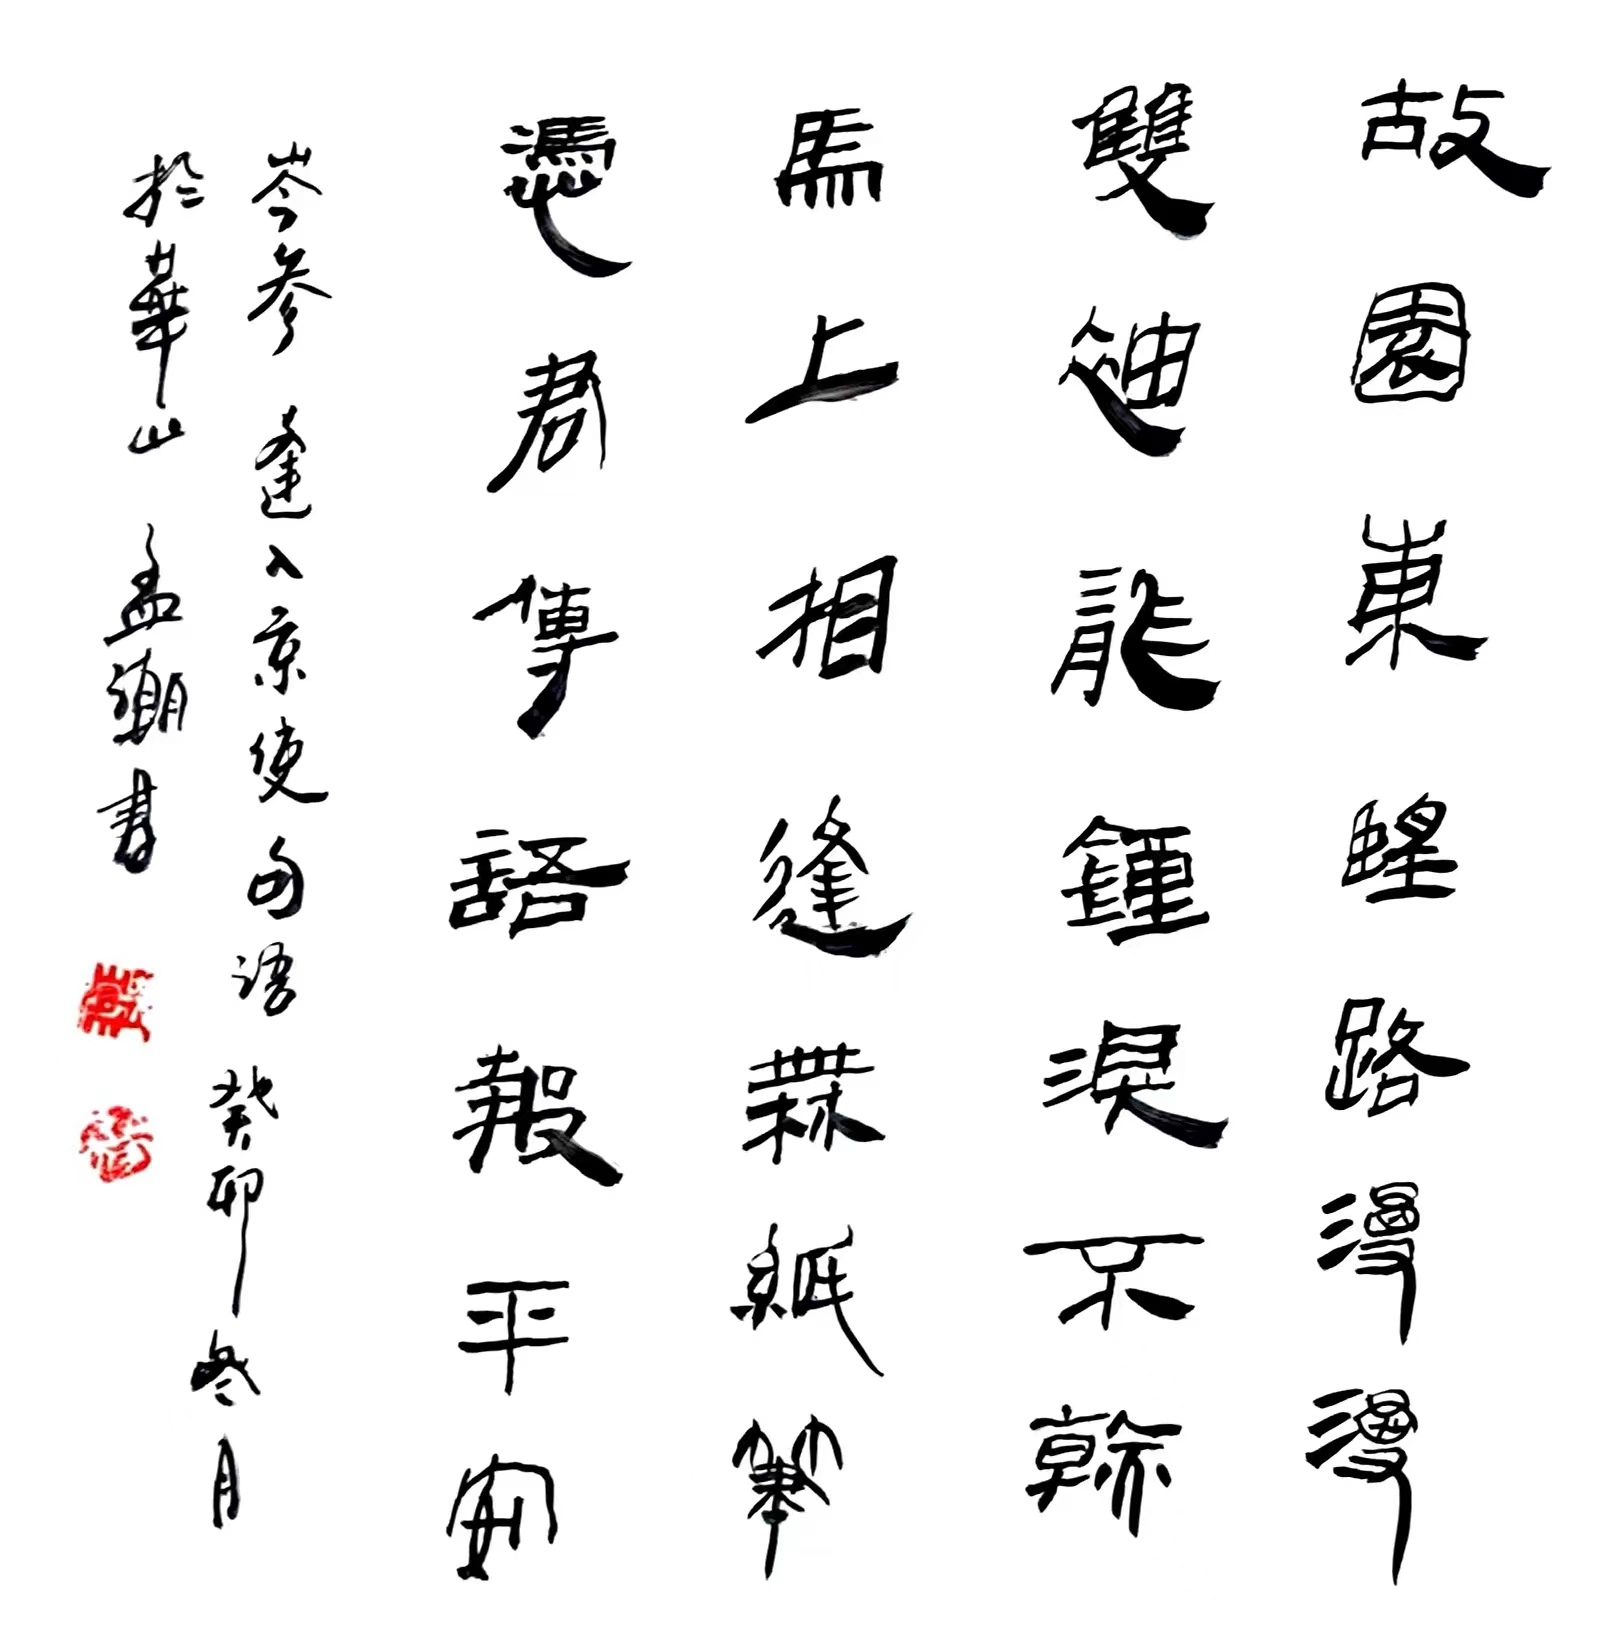 故園東望路漫漫
雙袖龍鍾淚不乾
馬上相逢無紙筆
憑君傳語報平安
岑參 逢入京使句語 癸卯冬月
於華山 孟潮書